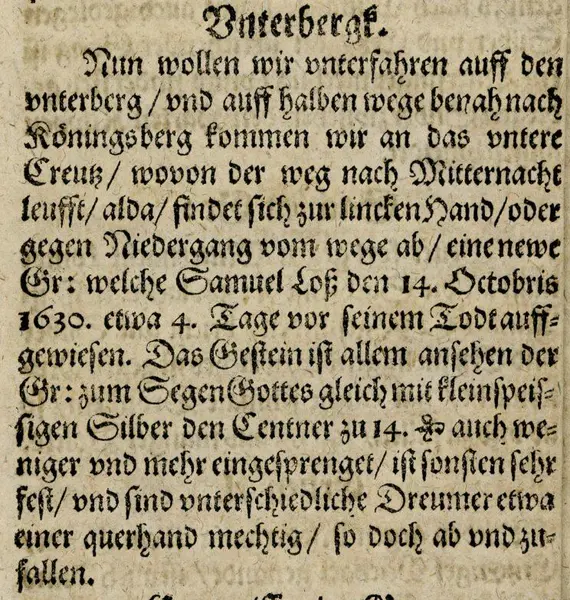 Vnterbergk.
Nun wollen wir vnterfahren auff den
vnterberg / vnd auff halben wege benah nach
Köningsberg kommen wir an das vntere
Creutz / wovon der weg nach Mitternacht
leufft / alda / findet sich zur lincken Hand / oder
gegen Niedergang vom wege ab / eine newe
Gr: welche Samuel Loß den 14. Octobris
1630. etwa 4. Tage vor seinem Todt auff-
gewiesen. Das Gestein ist allem ansehen der
Gr: zum Segen Gottes gleich mit kleinspeis-
sigen Silber den Centner zu 14. auch we-
niger vnd mehr eingesprenget / ist sonsten sehr
fest / vnd sind vnterschiedliche Dreumer etwa
einer querhand mechtig / so doch ab vnd zu-
fallen.